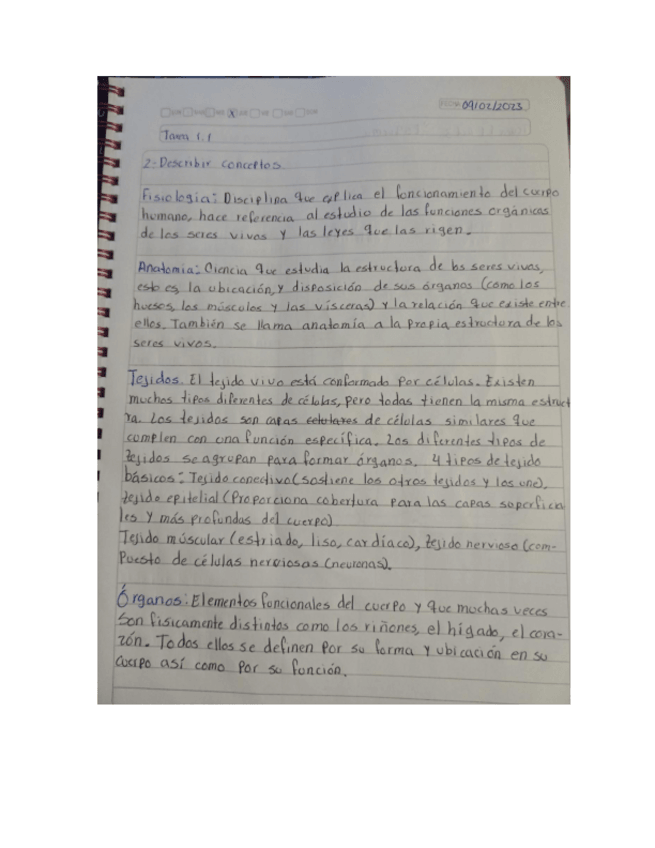 FECHA 09/02/2023
X
Tarea 1.1
2-Describir conceptos
Fisiología: Disciplina que explica el funcionamiento del cuerpo
humano, hace referencia al estudio de las funciones orgánicas
de los seres vivos y las leyes que las rigen.
Anatomia: Ciencia que estudia la estructura de los seres vivos,
esto es la ubicación, y disposición de sus órganos (como los
huesos, los músculos y las vísceras) y la relación que existe entre
ellos. También se llama anatomía a la propia estructura de los
seres vivos.
Tejidos. El tejido vivo está conformado por células. Existen
muchos tipos diferentes de células, pero todas tienen la misma estruct
ra. Los tejidos son capas celulares de células similares que
cumplen con una función específica. Los diferentes tipos de
tejidos se agrupan para formar órganos. 4 tipos de tejido
básicos: Tejido conectivo (sostiene los otros tejidos y los une),
tejido epitelial (Proporciona cobertura para las capas superficia
les y más profundas del cuerpo)
Tejido múscular (estriado, liso, cardíaco), tejido nervioso (com-
puesto de células nerviosas (neuronas).
Órganos: Elementos funcionales del cuerpo y que muchas veces
son físicamente distintos como los riñones, el hígado, el cora-
zón. Todos ellos se definen por su forma y ubicación en su
cuerpo así como por su función.